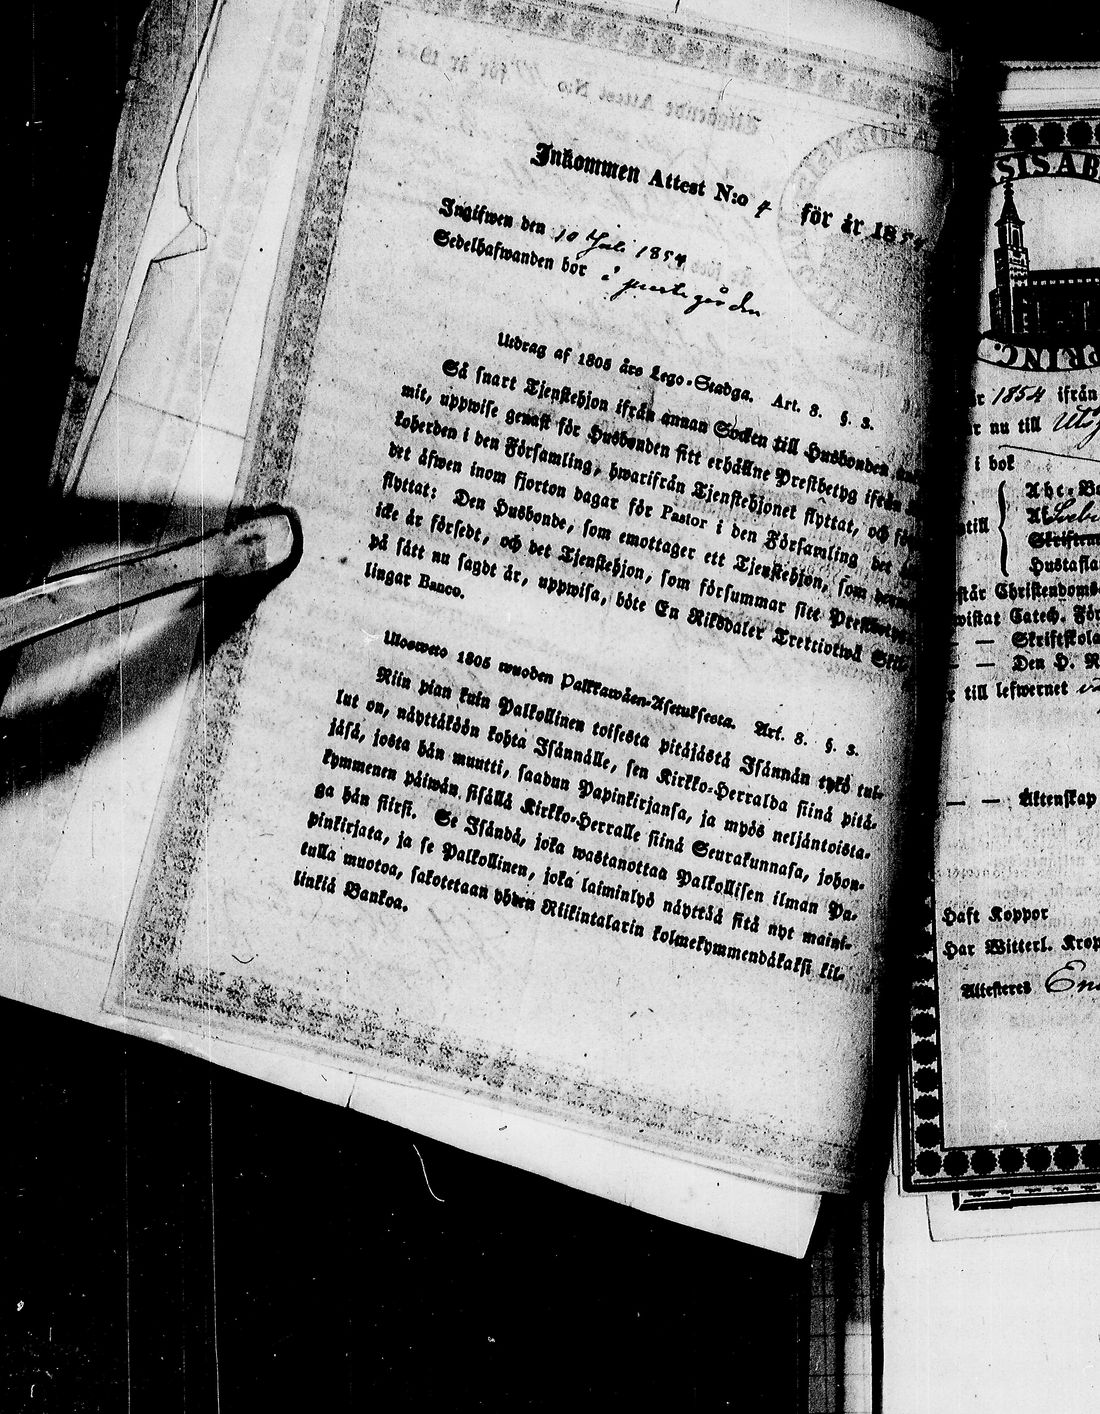 Inkommen Attest N:o 4 för år 1854
Ingifwen den 10 Juli 1854
Sedelhafwanden bor i prestegården
Utdrag af 1805 års Lego-Stadga. Art. 8. §. 3.
Så snart Tjenstehjon ifrån annan Socken till Husbonden
mit, uppwise genast för Husbonden sitt erhållne Prestbetyg ifrån
koherden i den Församling, hwarifrån Tjenstehjonet flyttat, och
det äfwen inom fjorton dagar för Pastor i den Församling det
flyttat; Den Husbonde, som emottager ett Tjenstehjon, som
icke är försedt, och det Tjenstehjon, som försummar sitt Prestbetyg,
på sätt nu sagdt är, uppwisa, böte En Riksdaler Trettiotwå Skil-
lingar Banco.
Uloswето 1805 wuoden Palkkawäen-Asetuksesta. Art. 8. §. 3.
Niin pian kuin Palkollinen toisesta pitäjästä Isännän tykö tul-
lut on, näyttäköön kohta Isännälle, sen Kirkko-Herralda siinä pitä-
jäsä, josta hän muutti, saadun Papinkirjansa, ja myös neljäntoista-
kymmenen päiwän sisällä Kirkko-Herralle siinä Seurakunnasa, johon-
ga hän siirsi. Se Isändä, joka wastanottaa Palkollisen ilman Pa-
pinkirjata, ja se Palkollinen, joka laiminlyö näyttää sitä nyt maini-
tulla muotoa, sakotetaan yhden Riikintalarin kolmekymmendäkaksi kil-
linkiä Bankoa.
SIS AB
PRINC.
1854 ifrån
nu till
i bok
till
Abc-B
Hustafla
står Christendoms
wistat Catech. För
— — Skriftskola
— — Den H. N
till lefwernet
— — Äktenskap
Haft Koppor
Har Witterl. Krop
Attesteres